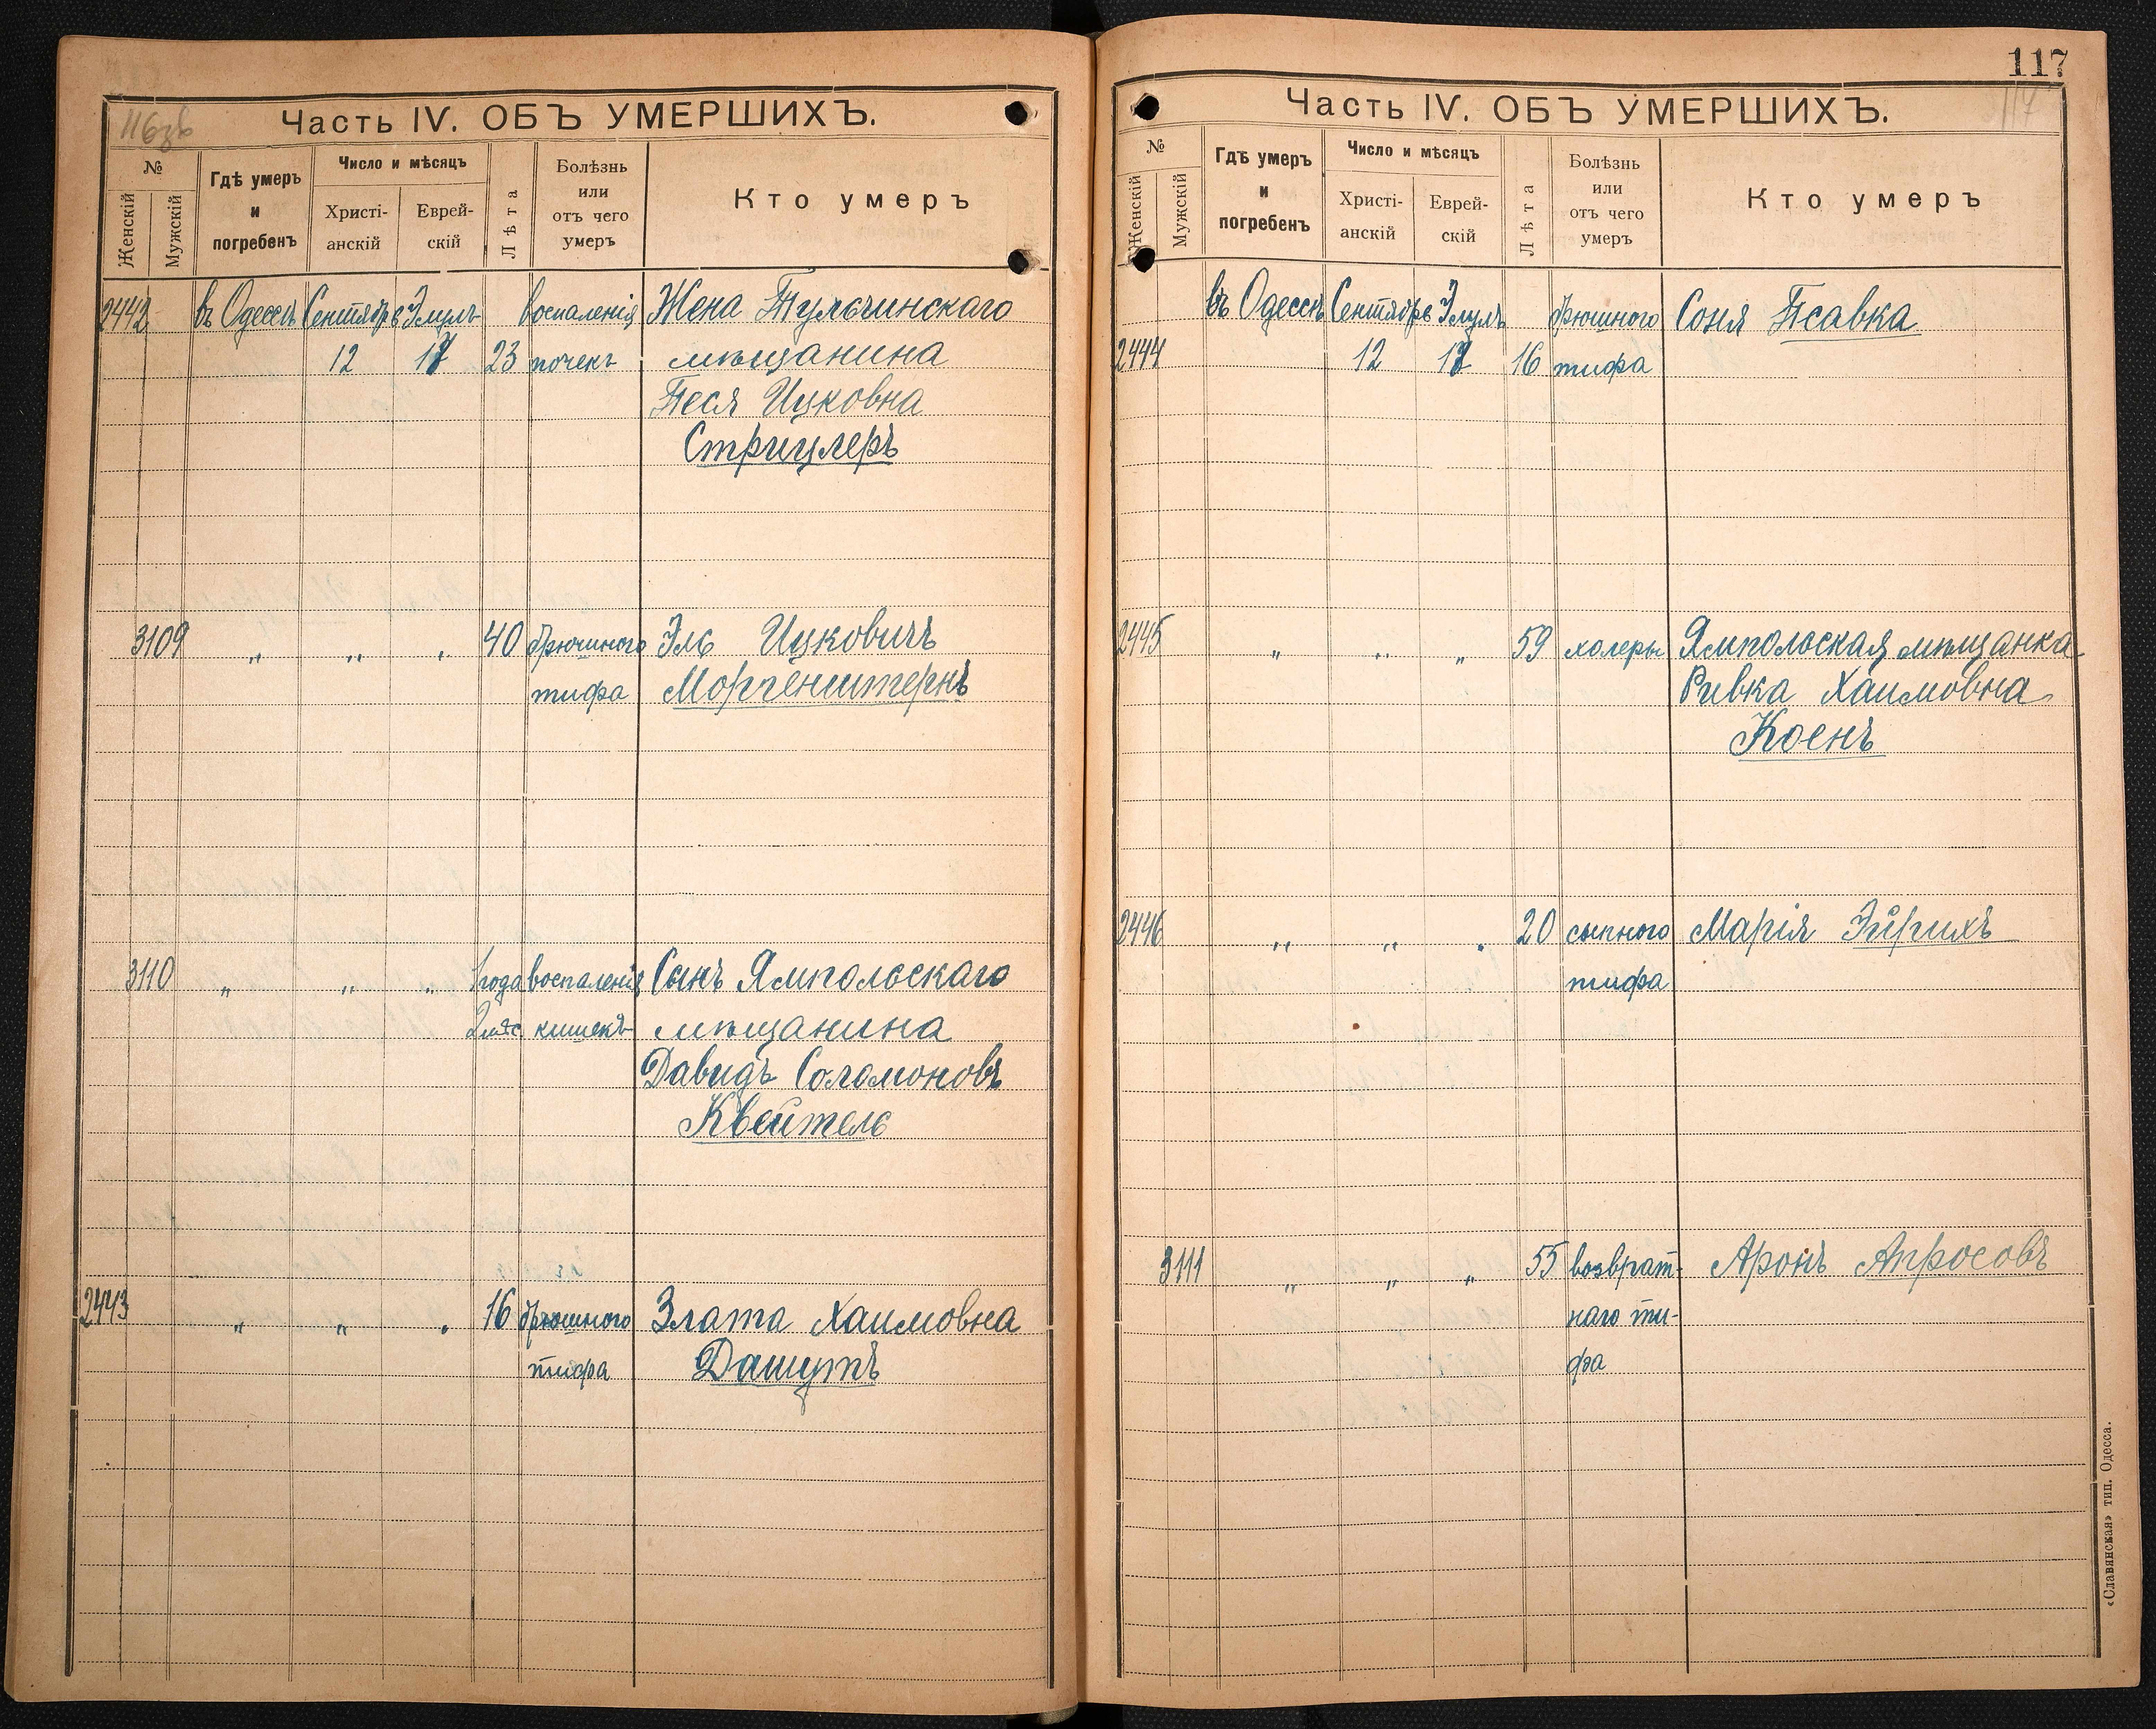 116зв
Часть IV. ОБЪ УМЕРШИХЪ.
№
Женскій
Мужскій
Гдѣ умеръ
и
погребенъ
Число и мѣсяцъ
Христі-
анскій
Еврей-
скій
Лѣта
Болѣзнь
или
отъ чего
умеръ
Кто умеръ
2442 въ Одессѣ Сентябрь Элулъ воспаленія Жена Тульчинскаго
12 17 23 почекъ мѣщанина
Песя Ицковна
Стрицлеръ
3109 „ „ „ 40 брюшного Эль Ицковичъ
тифа Моргенштернъ
3110 „ „ „ 1 года воспаленія Сынъ Ямпольскаго
2 мѣс. кишекъ мѣщанина
Давидъ Соломоновъ
Квейтель
2443 „ „ „ 16 брюшного Злата Хаимовна
тифа Дашутъ
117
117
Часть IV. ОБЪ УМЕРШИХЪ.
№
Женскій
Мужскій
Гдѣ умеръ
и
погребенъ
Число и мѣсяцъ
Христі-
анскій
Еврей-
скій
Лѣта
Болѣзнь
или
отъ чего
умеръ
Кто умеръ
въ Одессѣ Сентябрь Элулъ брюшного Соня Псавка
2444 12 16 тифа
2445 „ „ „ 59 холеры Ямпольская мѣщанка
Ривка Хаимовна
Коенъ
2446 „ „ „ 20 сыпного Марія Эйрихъ
тифа
3111 „ „ „ 55 возврат- Аронъ Апросовъ
наго ти-
фа
«Славянская» тип. Одесса.